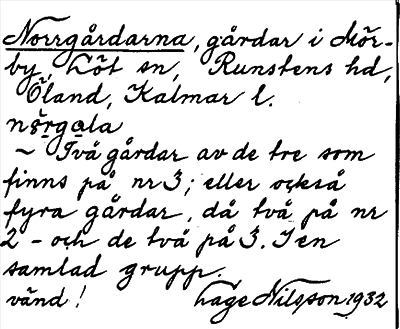 Norrgårdarna, gårdar i Mör-
by, Löt sn, Runstens hd,
Öland, Kalmar l.
nø̄rga̱la
~ Två gårdar av de tre som
finns på nr 3; eller också
fyra gårdar, då två på nr
2 - och de två på 3. I en
samlad grupp.
vänd! Lage Nilsson 1932